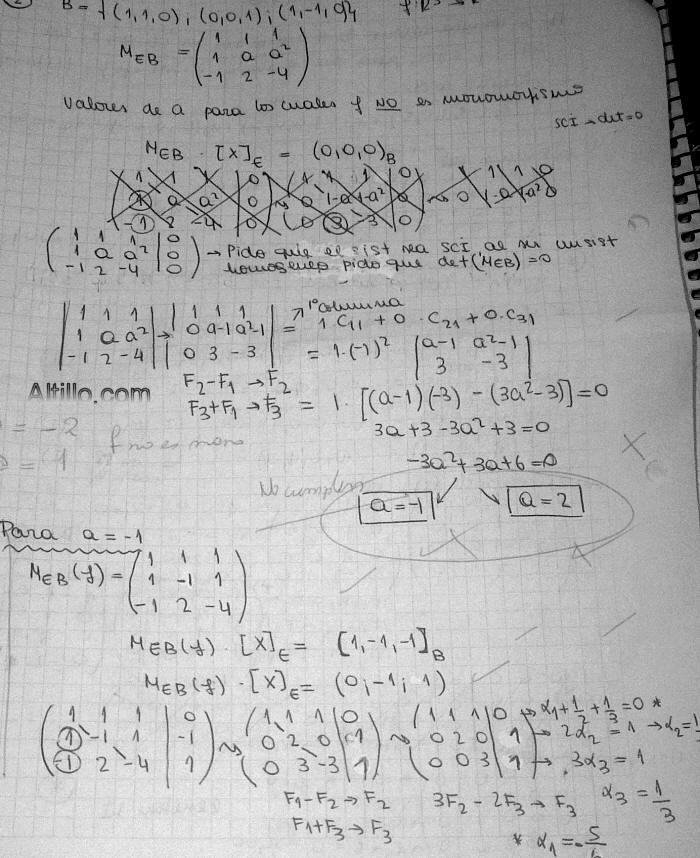 B = {(1,1,0); (0,0,1); (1,-1,0)}
M_EB = (1 1 1
1 a a²
-1 2 -4)
Valores de a para los cuales f NO es monomorfismo
SCI → det=0
M_EB · [X]_E = (0,0,0)_B
(1 1 1 | 0
1 a a² | 0
-1 2 -4 | 0) → Pido que el sist sea SCI al ser un sist
homogéneo pido que det(M_EB)=0
1° columna
|1 1 1
1 a a²
-1 2 -4| → |1 1 1
0 a-1 a²-1
0 3 -3| = 1 C11 + 0 · C21 + 0 · C31
= 1·(-1)² |a-1 a²-1
3 -3|
Altillo.com
F2-F1 → F2
F3+F1 → F3
= 1 · [(a-1)(-3) - (3a²-3)] = 0
= -2
f no es mono
3a+3-3a²+3=0
-3a²+3a+6=0
No cumplen
a=-1
a=2
Para a = -1
M_EB(f) = (1 1 1
1 -1 1
-1 2 -4)
M_EB(f) · [X]_E = [1,-1,-1]_B
M_EB(f) · [X]_E = (0; -1; 1)
(1 1 1 | 0
1 -1 1 | -1
-1 2 -4 | 1) ~ (1 1 1 | 0
0 2 0 | 1
0 3 -3 | 1) ~ (1 1 1 | 0
0 2 0 | 1
0 0 3 | 1)
→ α1 + 1/2 + 1/3 = 0 *
→ 2α2 = 1 → α2 = 1
→ 3α3 = 1
F1-F2 → F2
F1+F3 → F3
3F2 - 2F3 → F3
α3 = 1/3
* α1 = -5